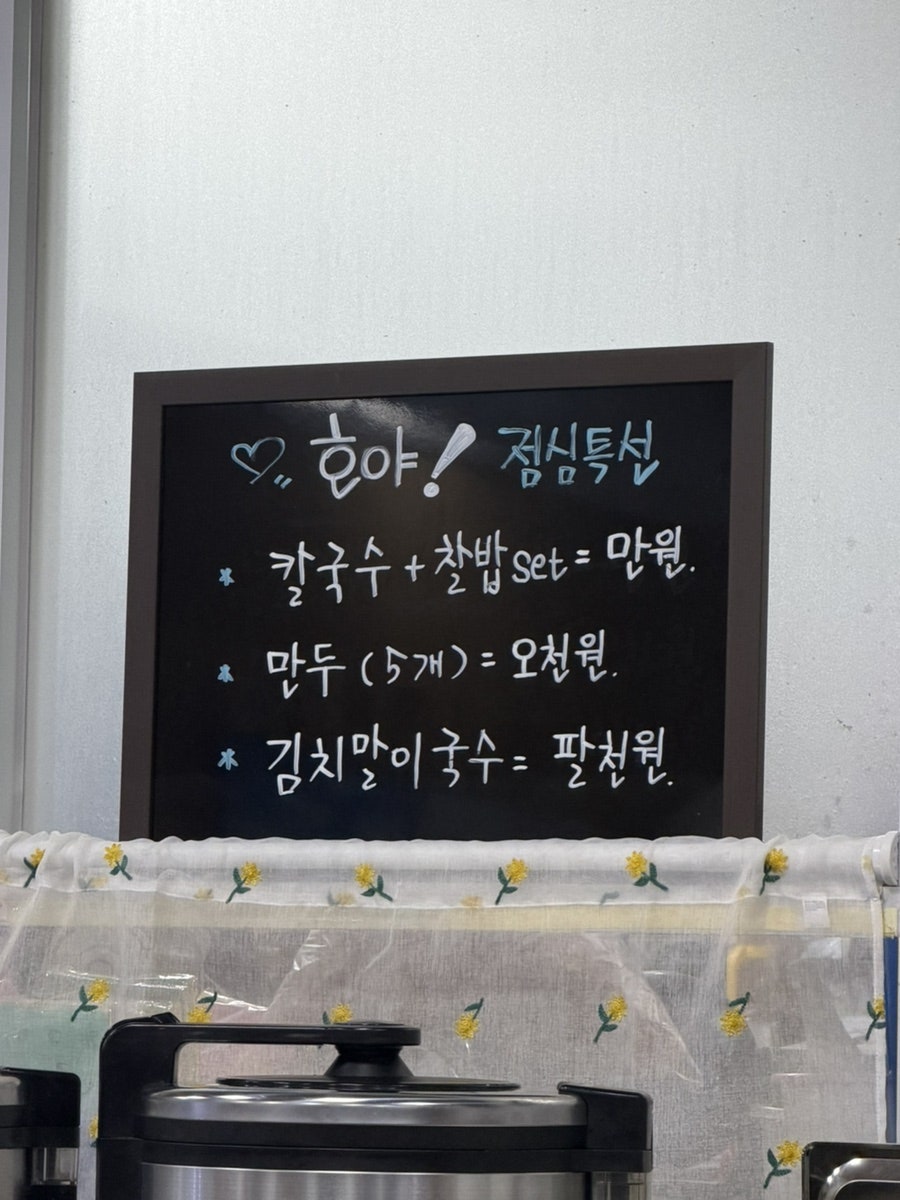 ♡ 호야! 점심특선
* 칼국수 + 찰밥 set = 만원.
* 만두 (5개) = 오천원.
* 김치말이국수 = 팔천원.